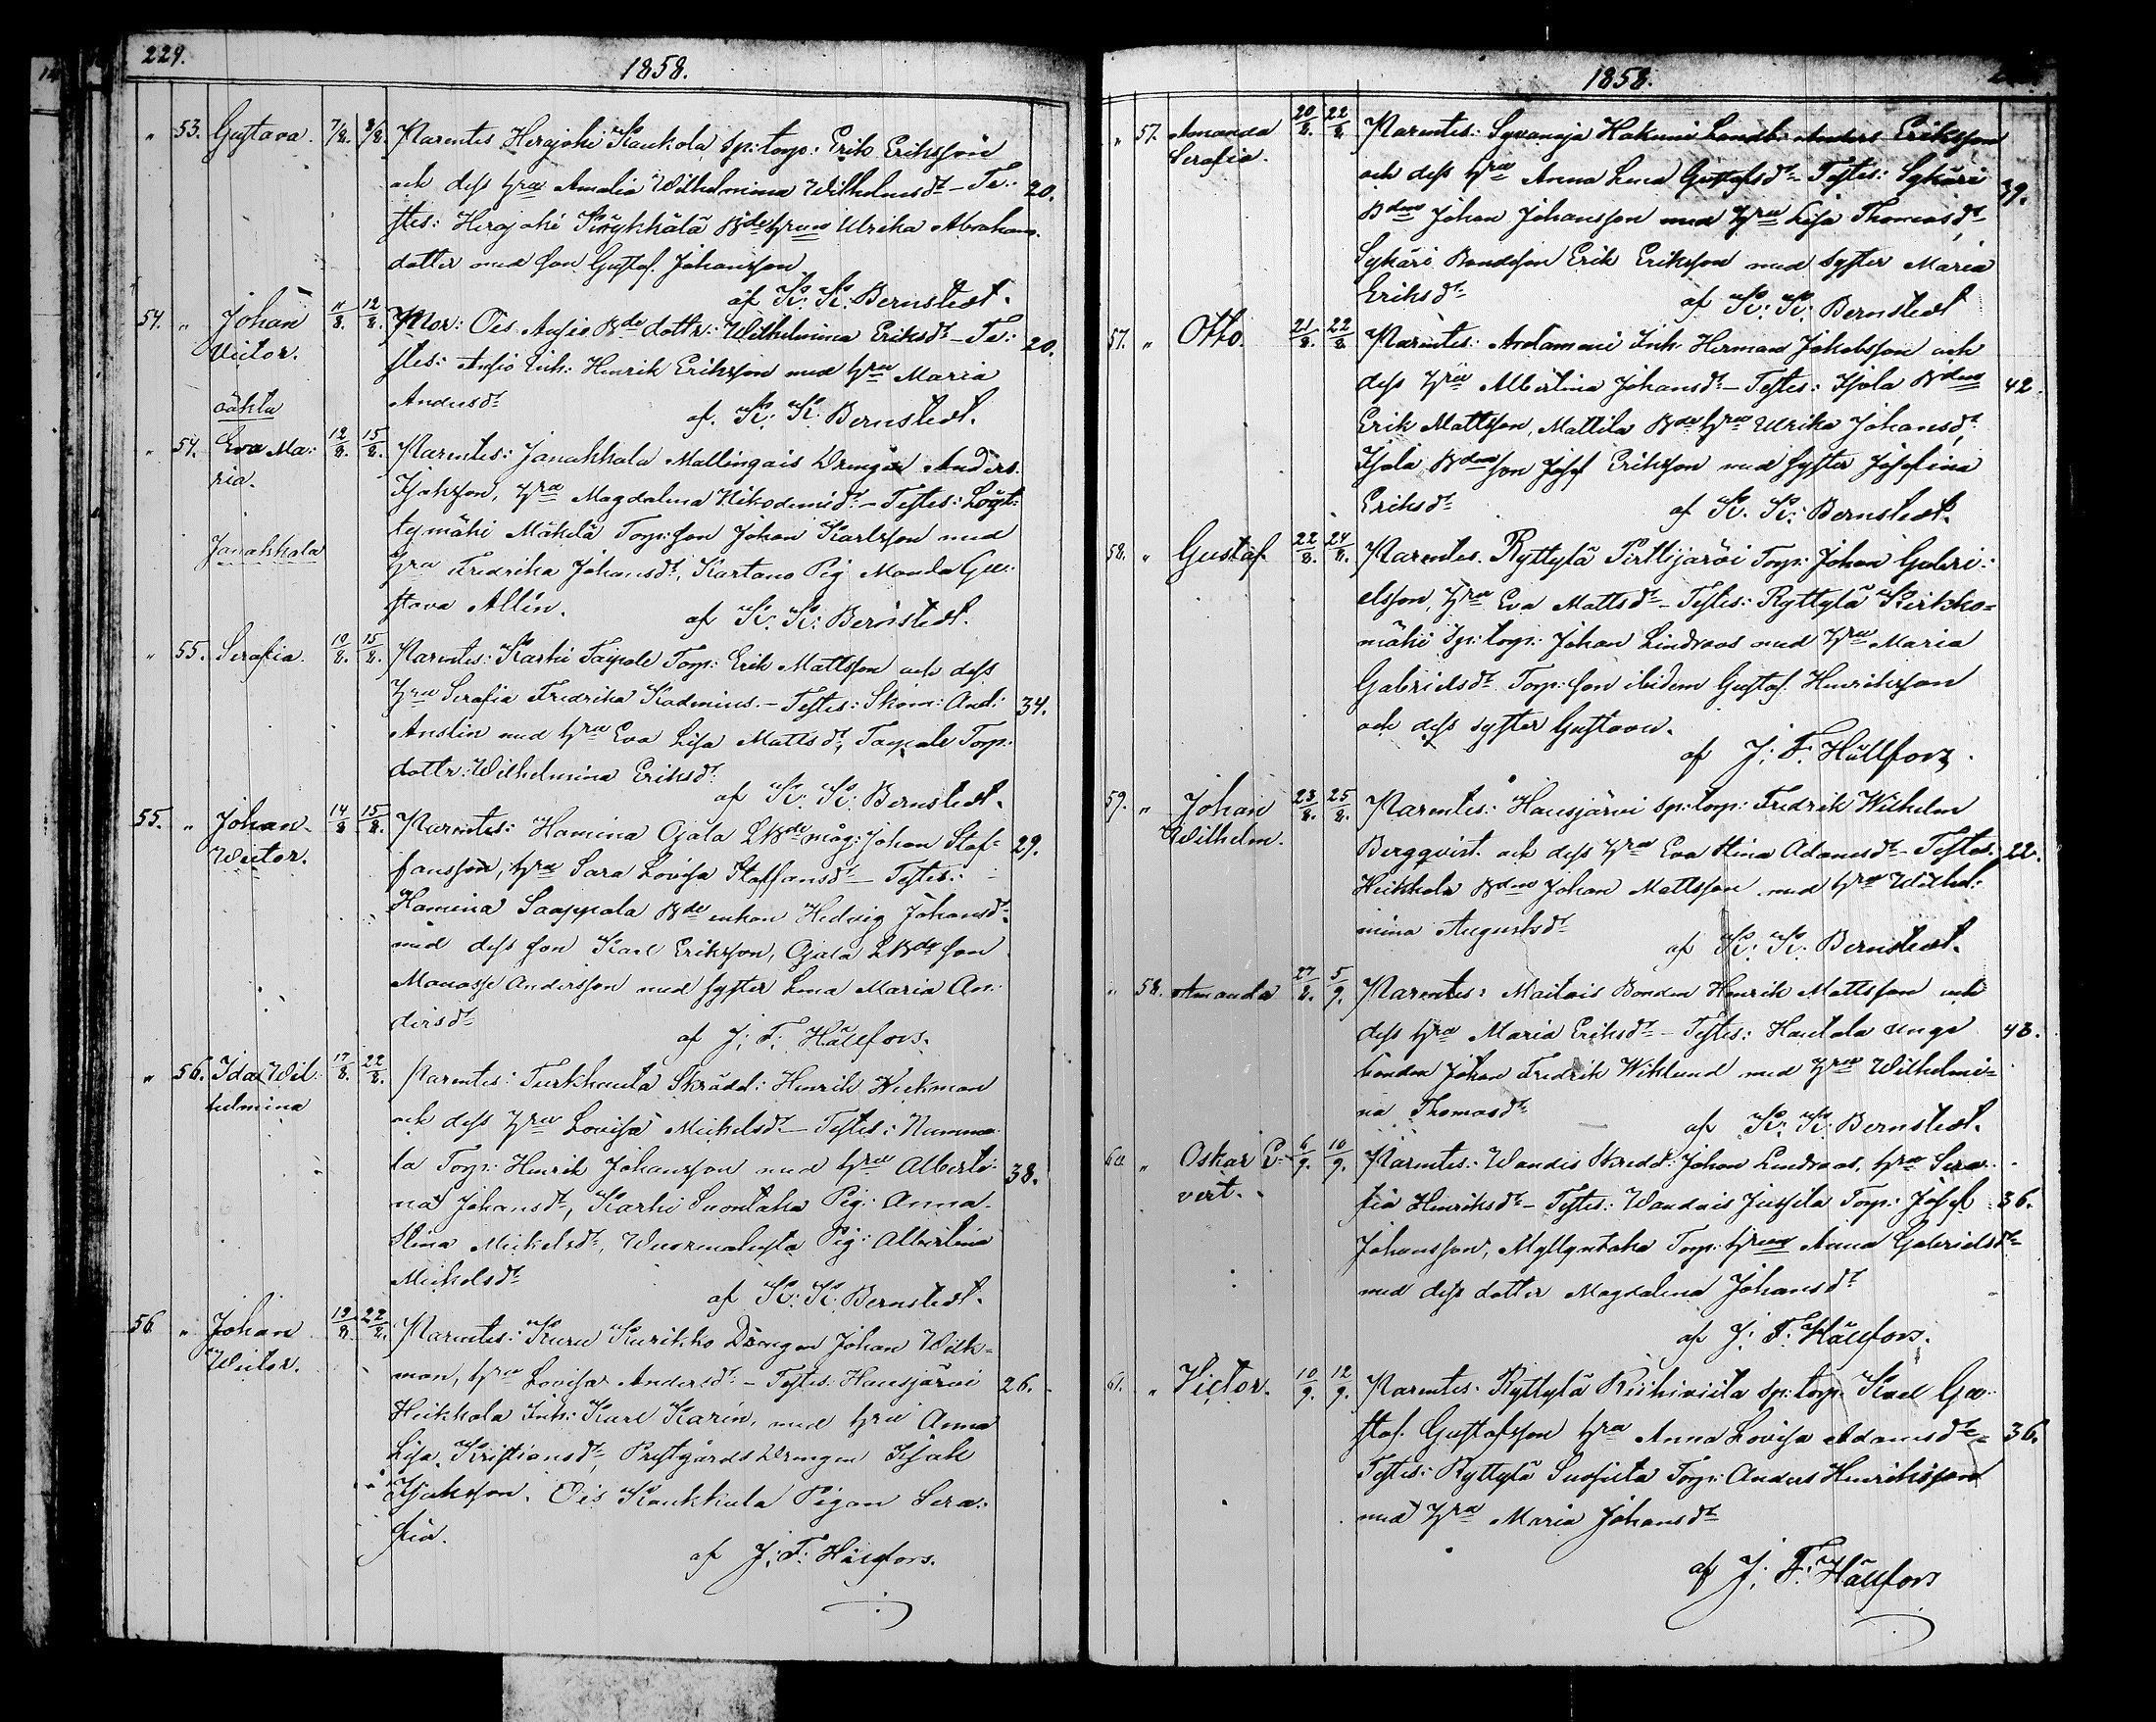 229.
1858.
" 53. Gustava. 7/8. 8/8. Parentes Herajoki Kaukola sp: torp: Erik Eriksson
och dess hru Amalia Wilhelmina Wilhelmsdr – Te: 20.
stes: Herajoki Bde hrun Ulrika Abrahams
dotter med son Gustaf Johansson
af K: K: Bernstedt.
54. " Johan 11/8. 12/8. Mor: Ois Ansio Bde dottr: Wilhelmina Eriksdr – Te: 20.
Victor. stes: Ansio Inh: Henrik Eriksson med hru Maria
oäkta Andersdr af. K: K: Bernstedt.
" 54. Eva Ma: 12/8. 15/8. Parentes: Janakkala Mallingais Drengen Anders
ria. Isaksson, hru Magdalena Nikodemidr – Testes: Löyt:
Janakkala tymäki Mäkelä Torp: son Johan Karlsson med
hru Fredrika Johansdr, Kartano Pig Manda Gu:
stava Allén. af K: K: Bernstedt.
" 55. Serafia. 10/8. 15/8. Parentes: Karhi Taipale Torp: Erik Mattsson och dess
hru Serafia Fredrika Kadenius. – Testes: Skom: And: 34.
Anslin med hru Eva Lisa Mattsdr, Taipale Torp:
dottr: Wilhelmina Eriksdr.
af K: K: Bernstedt.
55. " Johan 14/8 15/8. Parentes: Hamina Ojala LBde måg: Johan Staf- 29.
Wictor. fansson, hru Sara Lovisa Staffansdr – Testes:
Hamina Saappala Bde enkan Hedvig Johansdr
med dess son Karl Eriksson, Ojala LBde son
Manasse Andersson med syster Lena Maria An:
dersdr af J: F: Hällfors.
" 56. Ida Wil: 17/8. 22/8. Parentes: Turkhauta Skrädd: Henrik Wickman
helmina och dess hru Lovisa Mickelsdr – Testes: Numma
la Torp: Henrik Johansson med hru Alberti: 38.
na Johansdr, Karhi Suontaka Pig: Anna
Stina Mickelsdr, Pig: Albertina
Mickelsdr af K: K: Bernstedt.
56. " Johan 19/8. 22/8. Parentes: Kuru Kurikko Drengen Johan Wik-
Wictor. man, hru Lovisa Andersdr – Testes: Hausjärvi 26.
Heikkola Inh: Karl Karin, med hru Anna
Lisa Kristiansdr, Prestgårds Drengen Isak
Isaksson. Ois Kaukkala Pigan Sera:
fia.
af J: F: Hällfors.
1858.
" 57. Amanda 20/8. 22/8 Parentes: Syvänoja Hakuni Landb: Anders Eriksson
Serafia. och dess hru Anna Lena Gustafsdr – Testes: Sykäri 39.
Bden Johan Johansson med hru Lisa Thomasdr,
Sykäri Bondson Erik Eriksson med syster Maria
Eriksdr af K: K: Bernstedt
57. " Otto. 21/8. 22/8 Parentes: Inh: Herman Jakobsson och
dess hru Albertina Johansdr – Testes: Isola Bden 42
Erik Mattsson, Mattila Bde hru Ulrika Johansdr,
Isola Bden son Josef Eriksson med syster Josefina
Eriksdr af K. K: Bernstedt.
58. " Gustaf 22/8. 24/8. Parentes. Ryttylä Pirttijärvi Torp: Johan Gabri:
elsson, hru Eva Mattsdr – Testes: Ryttylä Kirkko=
mäki Sp: torp: Johan Lindroos med hru Maria
Gabrielsdr Torp: son ibidem Gustaf Henriksson
och dess syster Gustava.
af J: F: Hällfors.
59. " Johan 23/8. 25/8. Parentes: Hausjärvi sp: torp: Fredrik Wilhelm
Wilhelm. Bergqvist och dess hru Eva Stina Adamsdr – Testes. 22.
Heikkola Bden Johan Mattsson med hru Wilhel:
mina Augustsdr
af K: K: Bernstedt.
" 58. Amanda 27/8. 5/9. Parentes: Maitois Bonden Henrik Mattsson och
dess hru Maria Eriksdr – Testes: Hautala unge 43.
bonden Johan Fredrik Wiklund med hru Wilhelmi=
na Thomasdr
af K: K: Bernstedt.
60 " Oskar E- 6/9. 10/9. Parentes: Wandis Skredd: Johan Lindroos, hru Sera
vert. fia Henriksdr – Testes: Wandais Jussila Torp: Josef 36.
Johansson, Myllyntaka Torp: hrun Anna Gabrielsdr
med dess dotter Magdalena Johansdr
af J: F: Hällfors.
61. " Victor. 10/9. 12/9. Parentes. Ryttylä sp: torp: Karl Gu:
staf Gustafsson hru Anna Lovisa Adamsdr – 36.
Testes: Ryttylä Torp: Anders Henriksson
med hru Maria Johansdr
af J: F: Hällfors